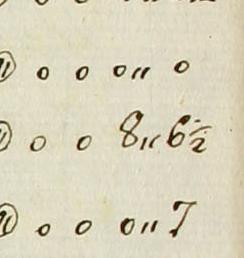 0 0 0 " 0
0 0 8 " 6½
0 0 0 " 7